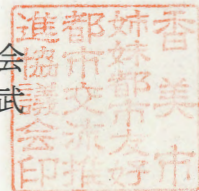 香美市
姉妹都市友好
都市交流推
進協議会印
会
武